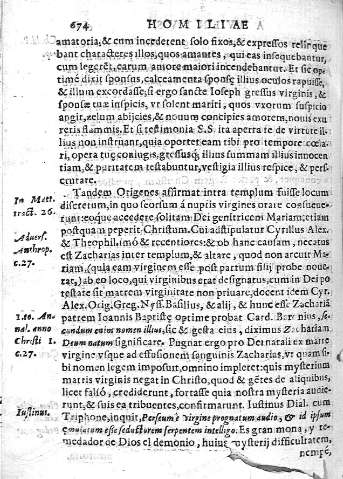 674 HOMILIAE
amatoria, & cum incederent solo fixos, & expressos relinque
bant characteres illos, quos amantes, qui eas insequebantur,
cum legerēt, earum amore maiori incendebantur. Et sic op-
timè dixit sponsus, calceamenta sponsę illius oculos rapuisse,
& illum excordasse, si ergo sancte Ioseph gressus virginis, &
sponsæ tuæ inspicis, vt solent mariti, quos vxorum suspicio
angit, zelum abijcies, & nouum concipies amorem, nouis exu
reris flammis. Et si testimonia S.S. ita aperta te de virtute il-
lius non instruant, quia oportet eam tibi pro tempore cœla-
ri, opera tuę coniugis, gressusq; illius summam illius innocen
tiam, & puritatem testabuntur, vestigia illius respice, & per-
scrutare.
Tandem Origenes affirmat intra templum fuisse locum
In Matt.
tract. 26.
discretum, in quo seorsum à nuptis virgines orare consueue-
runt: eoque accedere solitam Dei genitricem Mariam: etiam
postquam peperit Christum. Cui adstipulatur Cyrillus Alex
Aduers.
Anthrop.
c. 27.
& Theophil. imò & recentiores: & ob hanc causam, necatus
est Zacharias inter templum, & altare, quod non arcuit Ma-
riam, (quia eam virginem esse post partum filij probe noue-
rat,) ab eo loco, qui virginibus erat designatus, cum in Dei po
testate sit matrem virginitate non priuare, docent idem Cyr.
Alex. Orig. Greg. Nyss. Basilius, & alij, & hunc esse Zachariā
To. 10. An-
nal. anno
Christi 1.
c. 27.
patrem Ioannis Baptistę optime probat Card. Baronius, se-
cundum enim nomen illius, sic & gesta eius, diximus Zachariam
Deum natum significare. Pugnat ergo pro Dei natali ex matre
virgine vsque ad effusionem sanguinis Zacharias, vt quam si-
bi nomen legem imposuit, omnino impleret: quis mysterium
matris virginis negat in Christo, quod & gētes de aliquibus,
licet falsò, crediderunt, fortasse quia nostra mysteria audie-
runt, & suis ea tribuentes, confirmarunt. Iustinus Dial. cum
Iustinus.
Triphone, inquit, Perseum è virgine prognatum audio, & id ipsum
esse seductorem serpentem intelligo. Es gran mona, y re-
medador de Dios el demonio, huius mysterij difficultatem,
nempe,